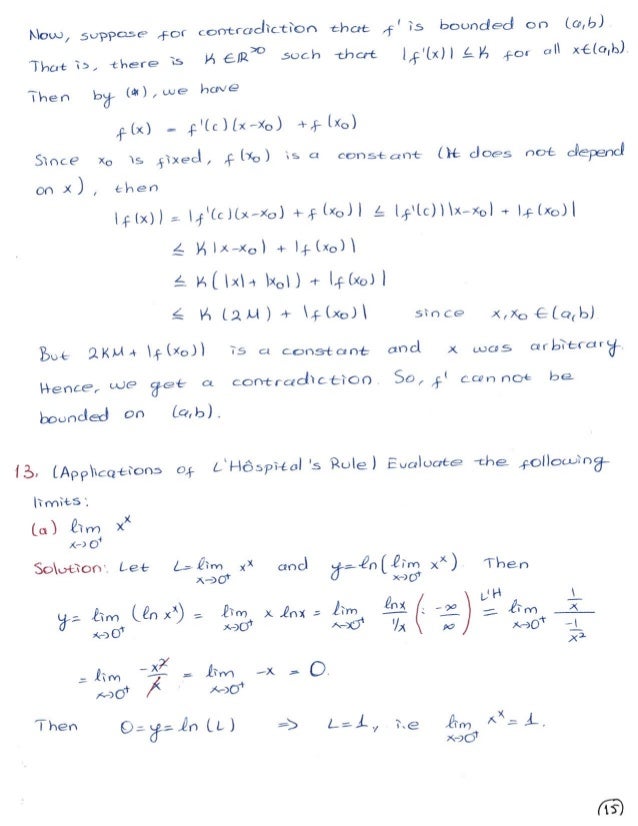 Now, suppose for contradiction that f' is bounded on (a,b).
That is, there is K ∈ ℝ^>0 such that |f'(x)| ≤ K for all x∈(a,b).
Then by (*), we have
f(x) = f'(c)(x-x₀) + f(x₀)
Since x₀ is fixed, f(x₀) is a constant (It does not depend
on x), then
|f(x)| = |f'(c)(x-x₀) + f(x₀)| ≤ |f'(c)||x-x₀| + |f(x₀)|
≤ K|x-x₀| + |f(x₀)|
≤ K(|x|+|x₀|) + |f(x₀)|
≤ K(2M) + |f(x₀)| since x,x₀ ∈(a,b)
But 2KM + |f(x₀)| is a constant and x was arbitrary.
Hence, we get a contradiction. So, f' cannot be
bounded on (a,b).
13. (Applications of L'Hôspital's Rule) Evaluate the following
limits:
(a) lim_{x→0⁺} x^x
Solution: Let L = lim_{x→0⁺} x^x and y = ln(lim_{x→0⁺} x^x). Then
y = lim_{x→0⁺} (ln x^x) = lim_{x→0⁺} x lnx = lim_{x→0⁺} lnx / 1/x (: -∞/∞) =^{L'H} lim_{x→0⁺} (1/x) / (-1/x²)
= lim_{x→0⁺} -x²/x = lim_{x→0⁺} -x = 0.
Then 0=y=ln(L) ⇒ L=1, i.e lim_{x→0⁺} x^x = 1.
15